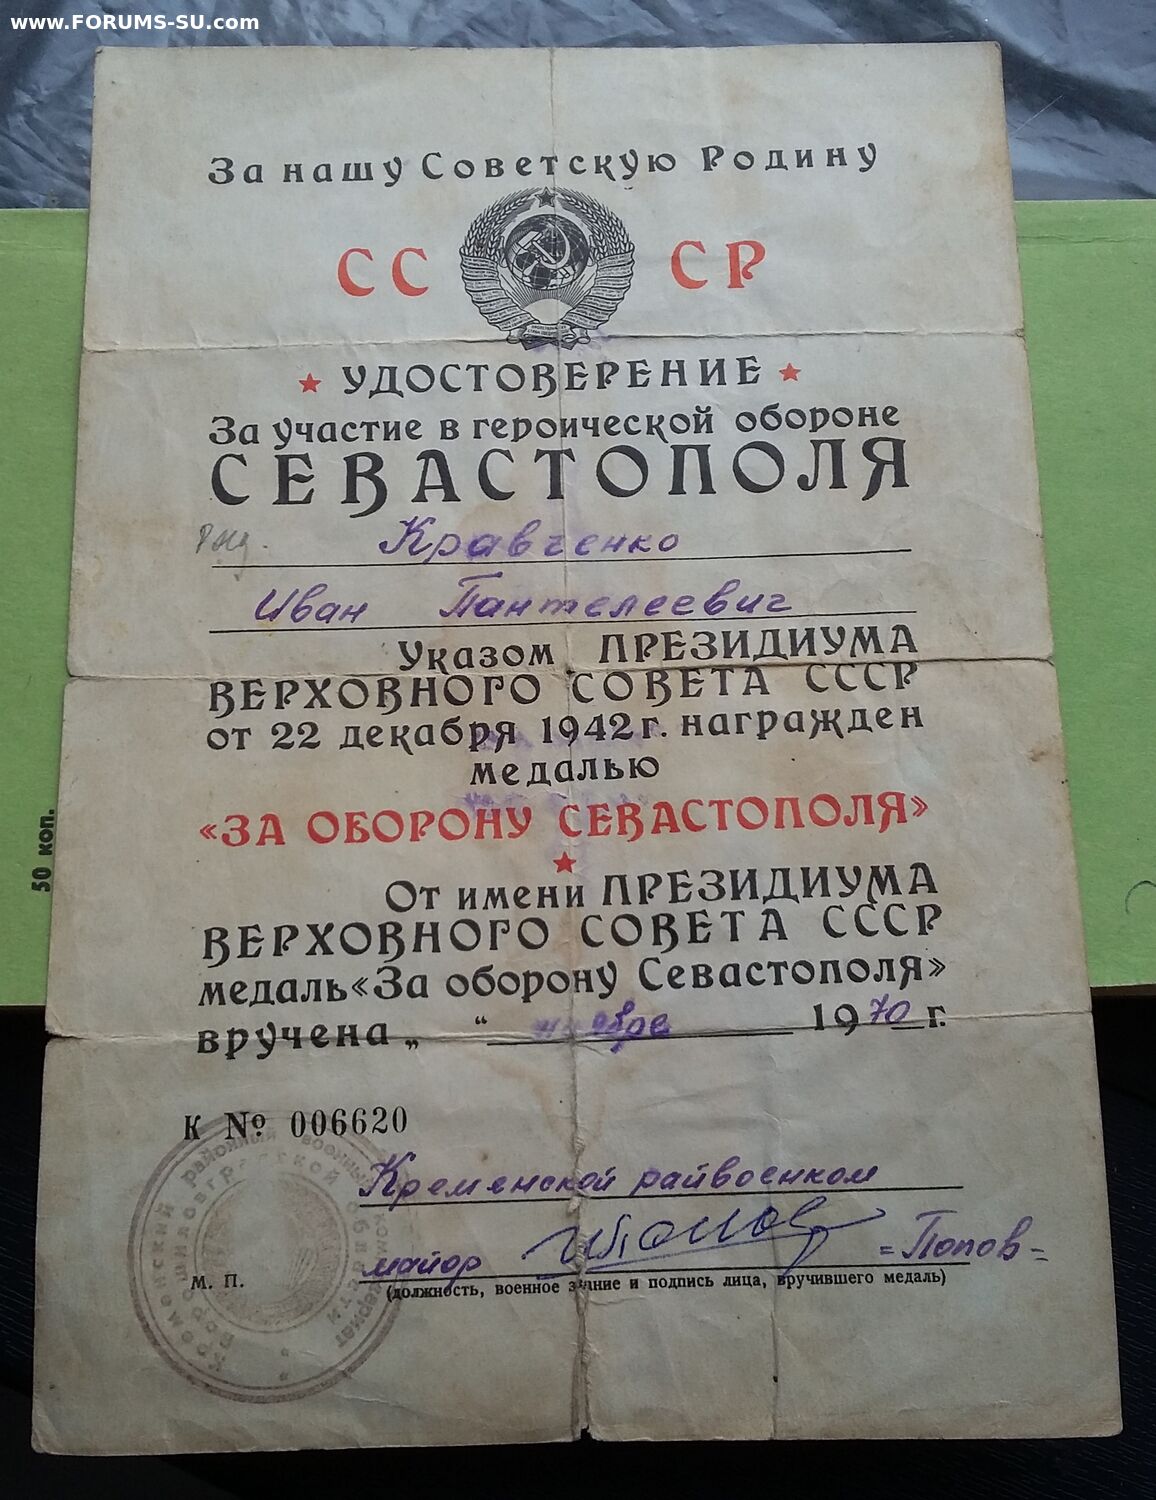 www.FORUMS-SU.com
За нашу Советскую Родину
СССР
★ УДОСТОВЕРЕНИЕ ★
За участие в героической обороне
СЕВАСТОПОЛЯ
Ряд. Кравченко
Иван Пантелеевич
Указом ПРЕЗИДИУМА
ВЕРХОВНОГО СОВЕТА СССР
от 22 декабря 1942 г. награжден
медалью
«ЗА ОБОРОНУ СЕВАСТОПОЛЯ»
★
От имени ПРЕЗИДИУМА
ВЕРХОВНОГО СОВЕТА СССР
медаль «За оборону Севастополя»
вручена „ “ 1970 г.
50 коп.
К № 006620
Кременский районный военный комиссариат
Ворошиловградской области
Кременской райвоенком
майор =Попов=
М. П.
(должность, военное звание и подпись лица, вручившего медаль)